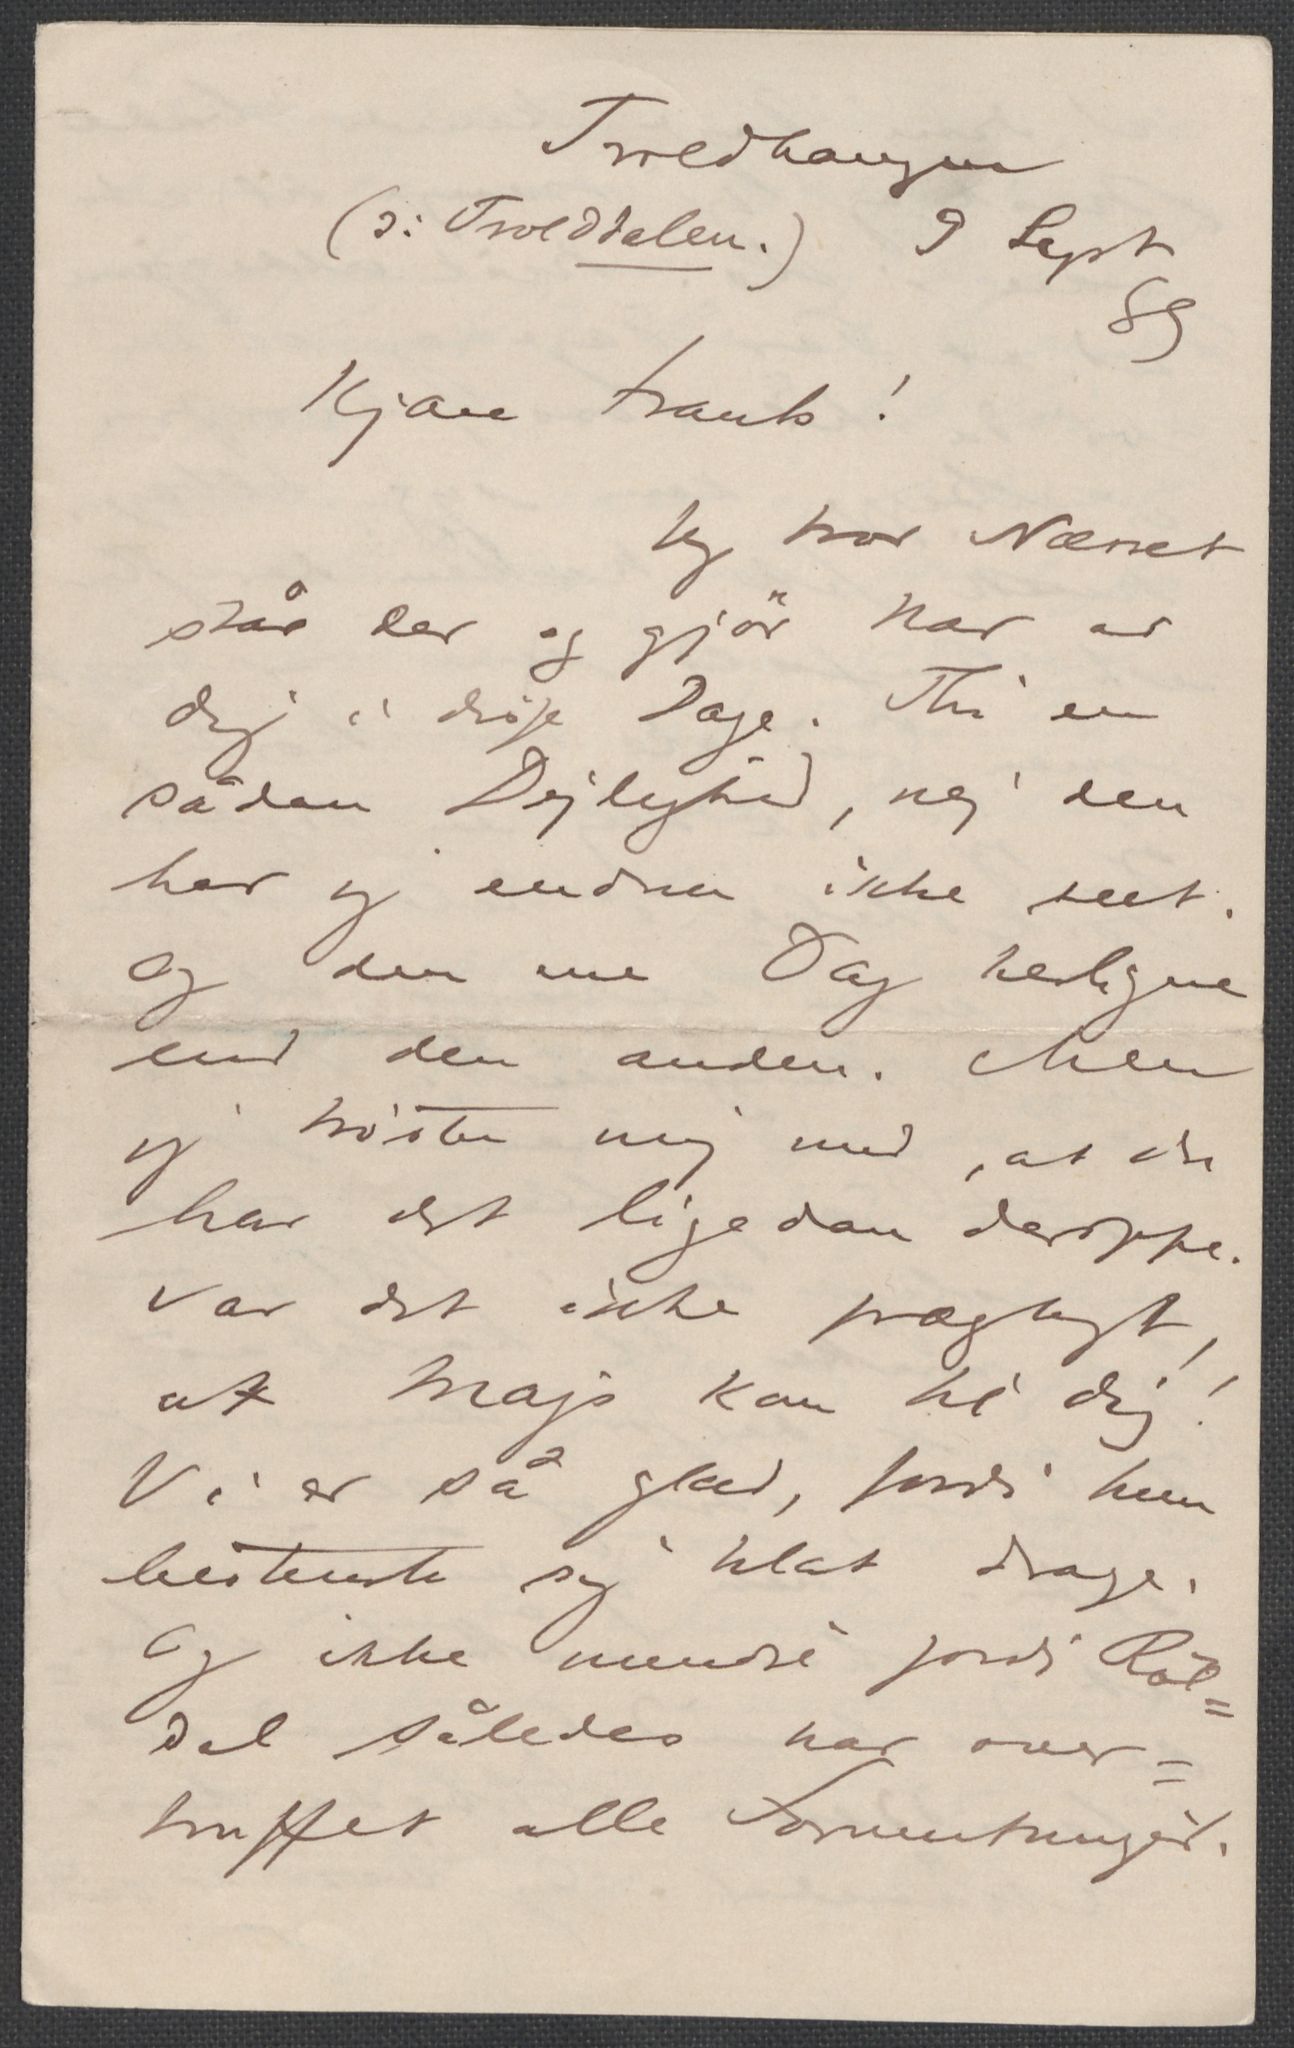 Troldhaugen
(ɔ: Trolddalen.) 9 Sept
89
Kjære Frants!
Jeg tror Næsset
står der og gjör Nar ad
dig i disse Dage. Thi en
sådan Dejlighed, nej den
har jeg endnu ikke seet.
Og den ene Dag herligere
end den anden. Men
jeg tröster mig med, at du
har det ligedan deroppe.
Var det ikke prægtigt,
at Majs kom til dig!
Vi er så glad, fordi hun
bestemte sig til at drage.
Og ikke mindst fordi Röl=
dal således har over=
truffet alle Forventninger.